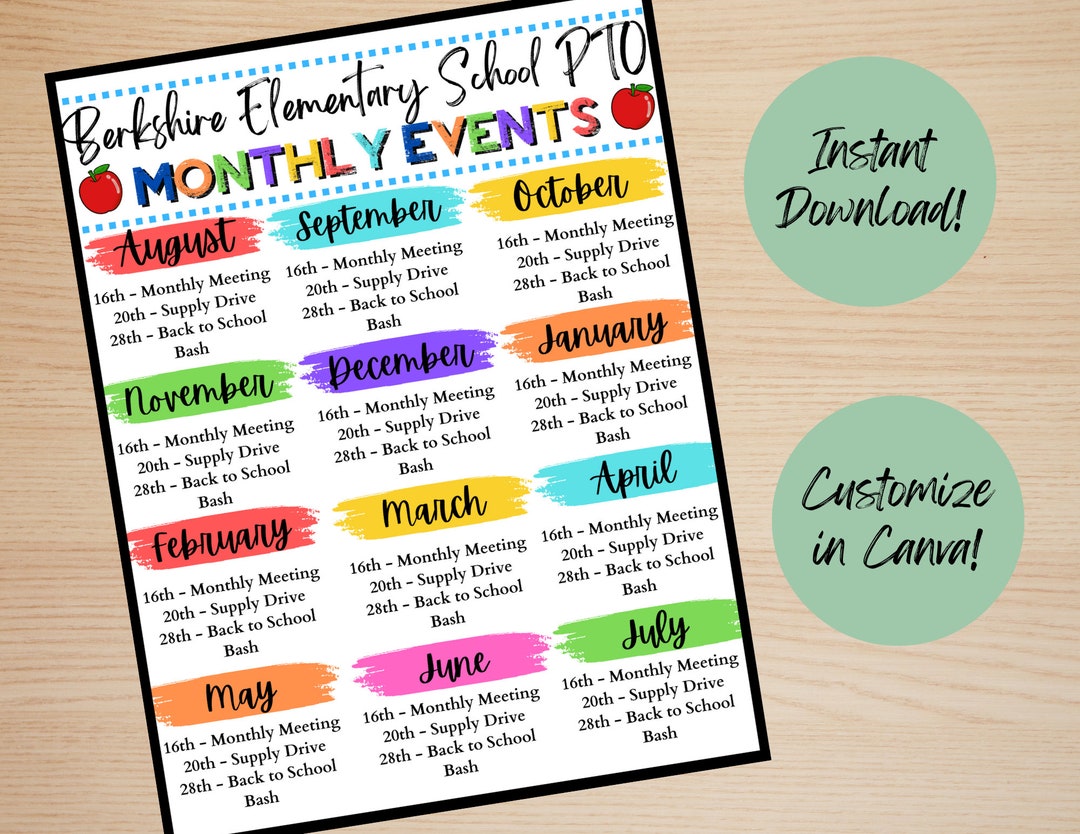 Berkshire Elementary School PTO
MONTHLY EVENTS
August
16th - Monthly Meeting
20th - Supply Drive
28th - Back to School
Bash
September
16th - Monthly Meeting
20th - Supply Drive
28th - Back to School
Bash
October
16th - Monthly Meeting
20th - Supply Drive
28th - Back to School
Bash
November
16th - Monthly Meeting
20th - Supply Drive
28th - Back to School
Bash
December
16th - Monthly Meeting
20th - Supply Drive
28th - Back to School
Bash
January
16th - Monthly Meeting
20th - Supply Drive
28th - Back to School
Bash
February
16th - Monthly Meeting
20th - Supply Drive
28th - Back to School
Bash
March
16th - Monthly Meeting
20th - Supply Drive
28th - Back to School
Bash
April
16th - Monthly Meeting
20th - Supply Drive
28th - Back to School
Bash
May
16th - Monthly Meeting
20th - Supply Drive
28th - Back to School
Bash
June
16th - Monthly Meeting
20th - Supply Drive
28th - Back to School
Bash
July
16th - Monthly Meeting
20th - Supply Drive
28th - Back to School
Bash
Instant
Download!
Customize
in Canva!